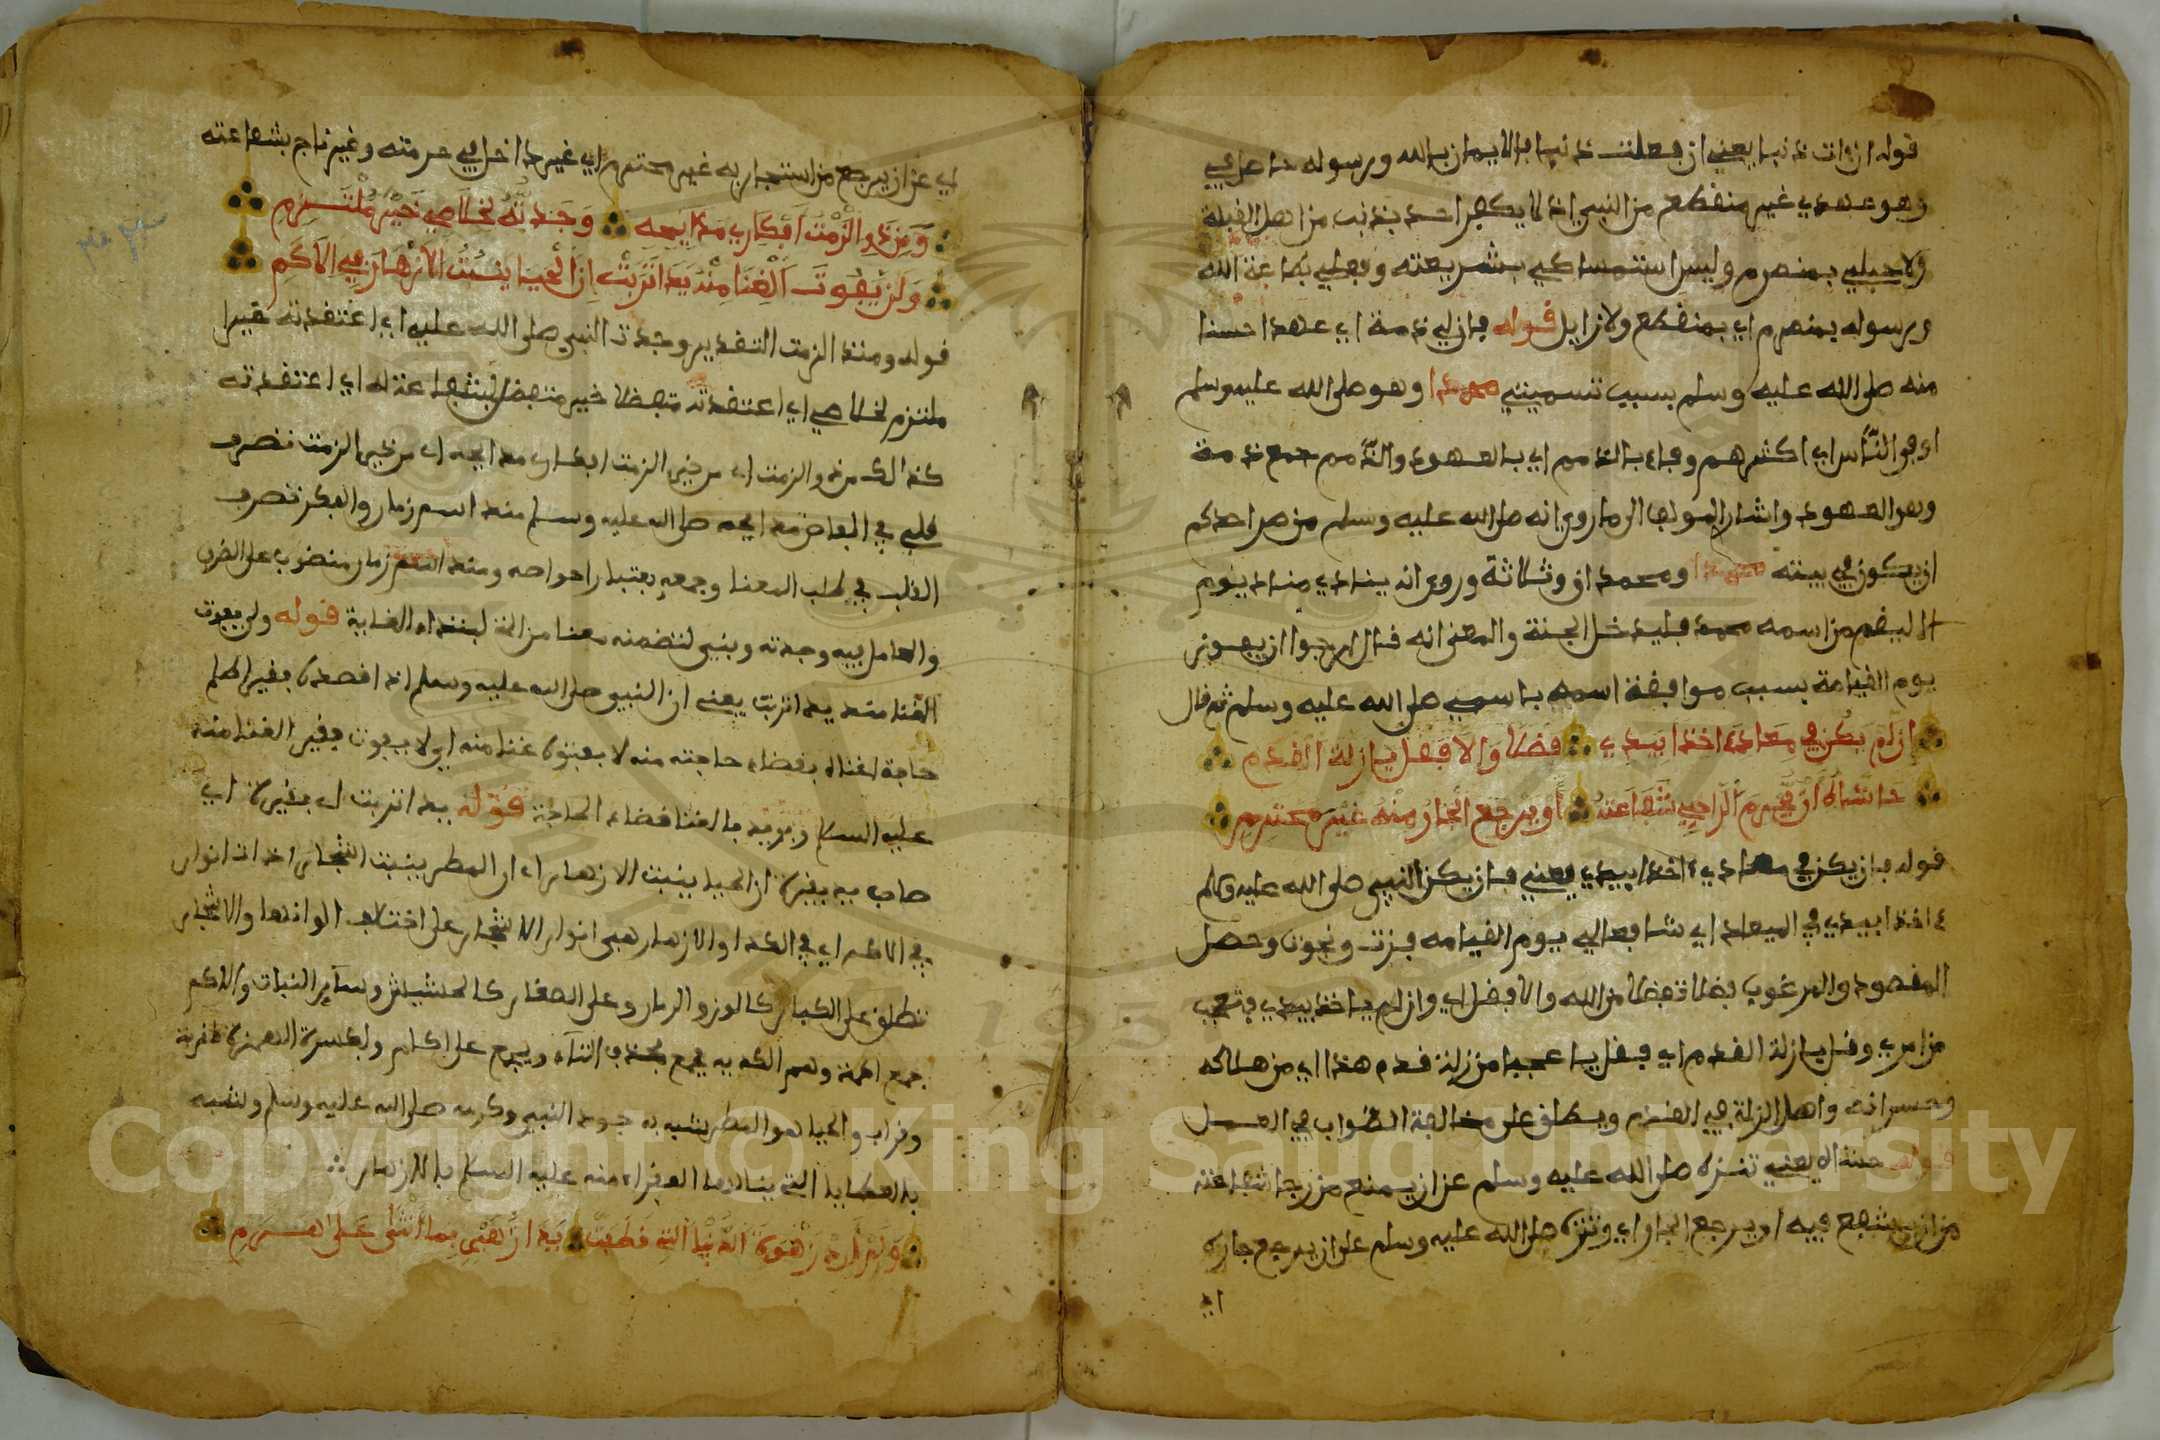 قوله ان ءات ذنبا يعني ان فعلت ذنبا فالايمان بالله ورسوله حاصل في
وهو عهدي غير منقطع من النبي اذ لا يكفر احد بذنب من اهل القبلة
ولا حبلي بمنصرم وليس استمساكي بشريعته وفعلي طاعة الله
ورسوله بمنصرم اي بمنقطع ولا زايل قوله فان لي ذمة اي عهدا حسنا
منه صلى الله عليه وسلم بسبب تسميتي محمدا وهو صلى الله عليه وسلم
اوفى الناس اي اكثرهم وفاء بالذمم اي بالعهود والذمم جمع ذمة
وهو العهود واشار المولف الى ما روي انه صلى الله عليه وسلم من ضر احدكم
ان يكون في بيته محمدا ومحمدان وثلاثة وروي انه ينادي مناد يوم
الا ليقم من اسمه محمد فليدخل الجنة والمعنى انه قال ارجوا ان يفوز
يوم القيامة بسبب موافقة اسمه باسمي صلى الله عليه وسلم ثم قال
ان لم يكن في معادي ءاخذا بيدي فضلا والا فقل يا زلة القدم
حاشاه ان يحرم الراجي شفاعته او يرجع الجار منه غير محترم
قوله فان يكن في معادي ءاخذا بيدي يعني فان يكن النبي صلى الله عليه وسلم
ءاخذا بيدي في الميعاد اي شافعا لي يوم القيامة فزت ونجوت وحصل
المقصود والمرغوب فضلا تفضلا من الله والا فقل اي وان لم ياخذ بيدي فتعجب
من امري وقل يا زلة القدم اي فقل يا عجبا من زلة قدم هذا اي من هلاكه
وخسرانه واصل الزلة في القدم ويطلق على مخالفة الصواب في العمل
قوله حاشاه يعني تنزه صلى الله عليه وسلم عن ان يمنع من رجا شفاعته
من ان يشفع فيه او يرجع الجار اي وتنزه صلى الله عليه وسلم على ان يرجع جاره
اي
اي عن ان يرجع من استجار به غير محترم اي غير داخل في حرمته وغير ناج بشفاعته
ومنذ الزمت افكاري مدايحه وجدته لخلاصي خير ملتزم
ولن يفوت الغنا منه يدا تربت ان الحيا ينبت الازهار في الاكم
قوله ومنذ الزمت التقدير وجدت النبي صلى الله عليه اي اعتقدته خيرا
ملتزم لخلاصي اي اعتقدته متفضلا خير متفضل بشفاعته اي اعتقدته
كذالك من ذو الزمت اي من حين الزمت افكاري مدايحه اي من حين الزمت تصرف
قلبي في الفاض مدايحه صلى الله عليه وسلم منذ اسم زمان والفكر تصرف
القلب في طلب المعنا وجمعه باعتبار انواعه ومنذ اسم زمان منصوب على الظرف
والعامل فيه وجدته وبني لتضمنه معنا من التي لابتداء الغاية قوله ولن يفوت
الغنا منه يدا تربت يعني ان النبي صلى الله عليه وسلم اذا قصده فقير الحلم
حاجة اغناه بقضاء حاجته منه لا يفوته غنا منه اي لا يفوت فقير الغنا منه
عليه السلام ويريد بالغنا قضاء الحاجة قوله يدا تربت اي فقيرة اي
صاب به بفقره ان الحيا ينبت الازهار اي ان المطر ينبت الشجار ذات انوار
في الاكم اي في الكدا والازهار هي انوار الاشجار على اختلاف الوانها والاشجار
تطلق على الكبار كالوز والرمان وعلى الصغار كالحشيش وساير النبات والاكم
جمع اكمة وهم الكديه يجمع بحذف التاء ويجمع على اكام وبكسرة الهمزة كقربة
وقراب والحيا هو المطر شبه به جود النبي وكرمه صلى الله عليه وسلم وشبه
بالعطايا التي ينالها الفقراء منه عليه السلام بالازهار
ولم ارد زهرة الدنيا التي قطعت يدا زهير بما اثنى على هرم